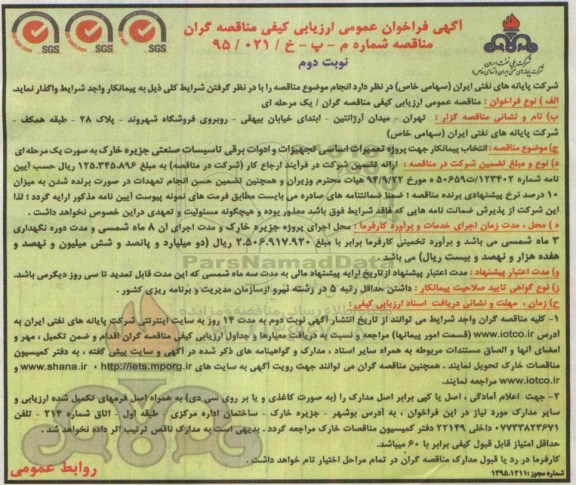 آگهی فراخوان عمومی ارزیابی کیفی مناقصه گران
مناقصه شماره م - پ - خ / ۰۲۱ / ۹۵
نوبت دوم
SGS SGS SGS
شرکت ملی نفت ایران
شرکت پایانه های نفتی ایران (سهامی خاص)
شرکت پایانه های نفتی ایران (سهامی خاص) در نظر دارد انجام موضوع مناقصه را با در نظر گرفتن شرایط کلی ذیل به پیمانکار واجد شرایط واگذار نماید.
الف ) نوع فراخوان : مناقصه عمومی ارزیابی کیفی مناقصه گران / یک مرحله ای
ب) نام و نشانی مناقصه گزار : تهران - میدان آرژانتین - ابتدای خیابان بیهقی - روبروی فروشگاه شهروند - پلاک ۲۸ - طبقه همکف -
شرکت پایانه های نفتی ایران (سهامی خاص)
ج) موضوع مناقصه : انتخاب پیمانکار جهت پروژه تعمیرات اساسی تجهیزات و ادوات برقی تاسیسات صنعتی جزیره خارک به صورت یک مرحله ای
د) نوع و مبلغ تضمین شرکت در مناقصه : ارائه تضمین شرکت در فرآیند ارجاع کار (شرکت در مناقصه) به مبلغ ۱۲۵،۳۴۵،۸۹۶ ریال حسب آیین
نامه شماره ۱۲۳۴۰۲/ت۵۰۶۵۹ ه مورخ ۹۴/۹/۲۲ هیات محترم وزیران و همچنین تضمین حسن انجام تعهدات در صورت برنده شدن به میزان
۱۰ درصد نرخ پیشنهادی برنده مناقصه ؛ ضمنا ضمانتنامه های صادره می بایست مطابق فرمت های نمونه پیوست آیین نامه مذکور ارایه گردد ؛ لذا
این شرکت از پذیرش ضمانت نامه هایی که فاقد شرایط فوق باشد معذور بوده و هیچگونه مسئولیت و تعهدی دراین خصوص نخواهد داشت .
ه ) محل ، مدت زمان اجرای خدمات و برآورد کارفرما : محل اجرای پروژه جزیره خارک و مدت اجرای آن ۸ ماه شمسی و مدت دوره نگهداری
۳ ماه شمسی می باشد و برآورد تخمینی کارفرما برابر با مبلغ ۲،۵۰۶،۹۱۷،۹۲۰ ریال (دو میلیارد و پانصد و شش میلیون و نهصد و
هفده هزار و نهصد و بیست ریال) می باشد .
و) مدت اعتبار پیشنهاد : مدت اعتبار پیشنهاد ازتاریخ ارایه پیشنهاد مالی به مدت سه ماه شمسی که این مدت قابل تمدید تا سی روز دیگرمی باشد.
ز) نوع گواهی تایید صلاحیت پیمانکار : داشتن حداقل رتبه ۵ در رشته نیرو ازسازمان مدیریت و برنامه ریزی کشور .
ح) زمان ، مهلت و نشانی دریافت اسناد ارزیابی کیفی :
۱- کلیه مناقصه گران واجد شرایط می توانند از تاریخ انتشار آگهی نوبت دوم به مدت ۱۴ روز به سایت اینترنتی شرکت پایانه های نفتی ایران به
آدرس www.iotco.ir (قسمت امور پیمانها) مراجعه و نسبت به دریافت معیارها و جداول ارزیابی کیفی مناقصه گران اقدام و ضمن تکمیل ، مهر و
امضای آنها و الصاق مستندات مربوطه به همراه سایر اسناد ، مدارک و گواهینامه های ذکر شده در آگهی و سایت پیش گفته ، به دفتر کمیسیون
مناقصات خارک تحویل نمایند . همچنین مناقصه گران می توانند جهت رویت آگهی به سایت های http://iets.mporg.ir ، www.shana.ir و
www.iotco.ir مراجعه نمایند.
۲- جهت اعلام آمادگی ، اصل یا کپی برابر اصل مدارک را (به صورت کاغذی و یا بر روی سی دی) به همراه اصل فرمهای تکمیل شده ارزیابی و
سایر مدارک مورد نیاز در این فراخوان ، به آدرس بوشهر - جزیره خارک - ساختمان اداره مرکزی - طبقه اول - اتاق شماره ۲۱۴ - تلفن
۰۷۷۳۳۸۲۳۶۷۱ داخلی ۲۲۱۴۹ دفتر کمیسیون مناقصات خارک مراجعه گردد . بدیهی است به مدارک ناقص ترتیب اثر داده نخواهد شد .
حداقل امتیاز قابل قبول کیفی برابر با ۶۰ میباشد.
کارفرما در رد یا قبول مدارک مناقصه گران در تمام مراحل اختیار تام خواهد داشت .
شماره مجوز :۱۳۹۵،۱۲۱۱
روابط عمومی
ParsNamadData